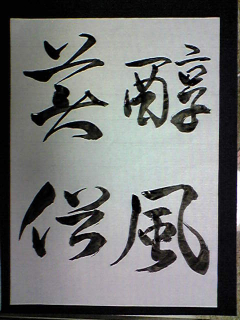 醇風
美俗